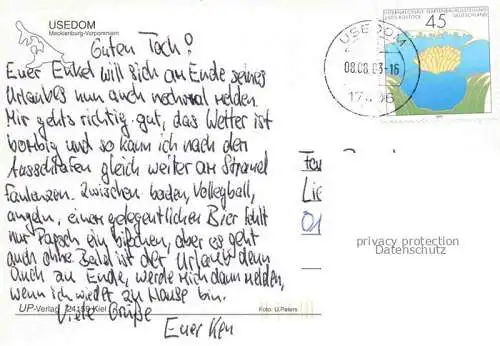 USEDOM
Mecklenburg-Vorpommern
Guten Tach!
Euer Enkel will sich am Ende seines
Urlaubes nun auch nochmal melden.
Mir gehts richtig gut, das Wetter ist
bombig und so kann ich nach dem
Ausschlafen gleich weiter am Strand
faulanzen. Zwischen baden, Volleyball,
angeln, einem gelegentlichen Bier fehlt
nur ein bischen, aber es geht
auch ohne. Bald ist der Urlaub dann
auch zu Ende, werde mich dann melden,
wenn ich wieder zu Hause bin.
Viele Grüße
Euer Ken
UP-Verlag 24159 Kiel
Foto: U.Peters
INTERNATIONALE GARTENBAUAUSSTELLUNG
2003 ROSTOCK
DEUTSCHLAND
45
USEDOM
08.08.03-16
Lie
privacy protection
Datenschutz